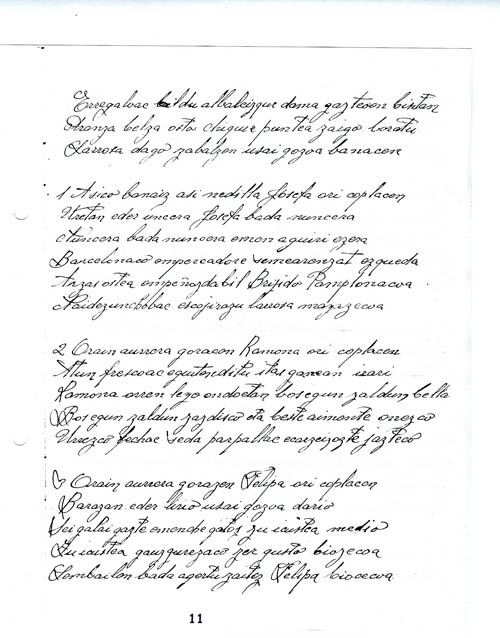 Erregaloac bildu albaleizque dama gazteoen bistan
Aranza belza osto chiquie puntea zaigo boratu
Larrosa dago zabalzen usai gozoa banacone
1 Asico banaiz asi nedilla Josefa ori coplacen
Uretan eder uncera Josefa bada nuncera
Auncera bada nuncera emon aguiri ezera
Barcelonaco emperadore semearenzat ezqueda
Arzas ostea empeñoz dabil Brijido Pamplonacoa
Naidezun bobac escojirazu larrosa
2 Orain aurrera goracon Ramona ori coplacen
Atun frescoac eguiten ditu itas ganean izari
Ramona orren leyo ondoetan bosegun zaldun bella
Bosegun zaldun zazdisco eta beste aimonte onezco
Urrezco fechac seda parpallac ecarzeizozte jazteco
3 Orain aurrera gorazen Felipa ori coplacen
Barazan eder lirio usai gozoa dario
Sei galai gazte emendo jatoz zu icustea medio
Zu icustea gauzgurezaco zer gusto biozecoa
Sembailen bada agertu zaitez Felipa biocecoa
11